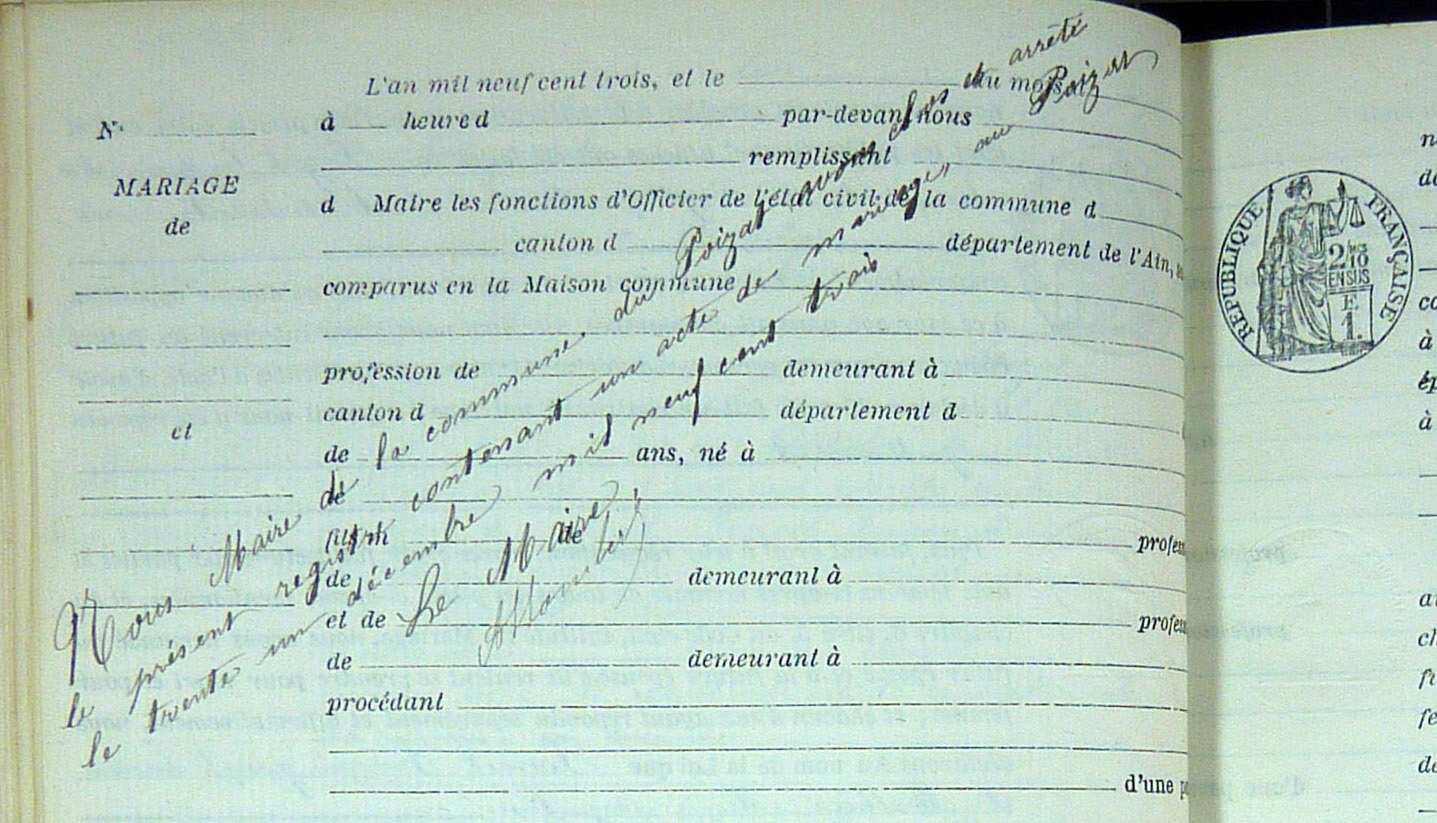 L'an mil neuf cent trois, et le du mois d
N° à heure d par-devant nous
remplissant
MARIAGE
d Maire les fonctions d'Officier de l'état civil de la commune d
de
canton d département de l'Ain,
comparus en la Maison commune
profession de demeurant à
canton d département d
et
de ans, né à
de
fils de
profes
de demeurant à
et de profes
de demeurant à
procédant
d'une p
Nous Maire de la commune du Poizat avons clos et arrêté
le présent registre contenant un acte de mariage, au Poizat
le trente un décembre mil neuf cent trois
Le Maire,
RÉPUBLIQUE FRANÇAISE
2/10
EN SUS
E
1.
n
de
co
à
ép
à
a
ch
fi
fe
de